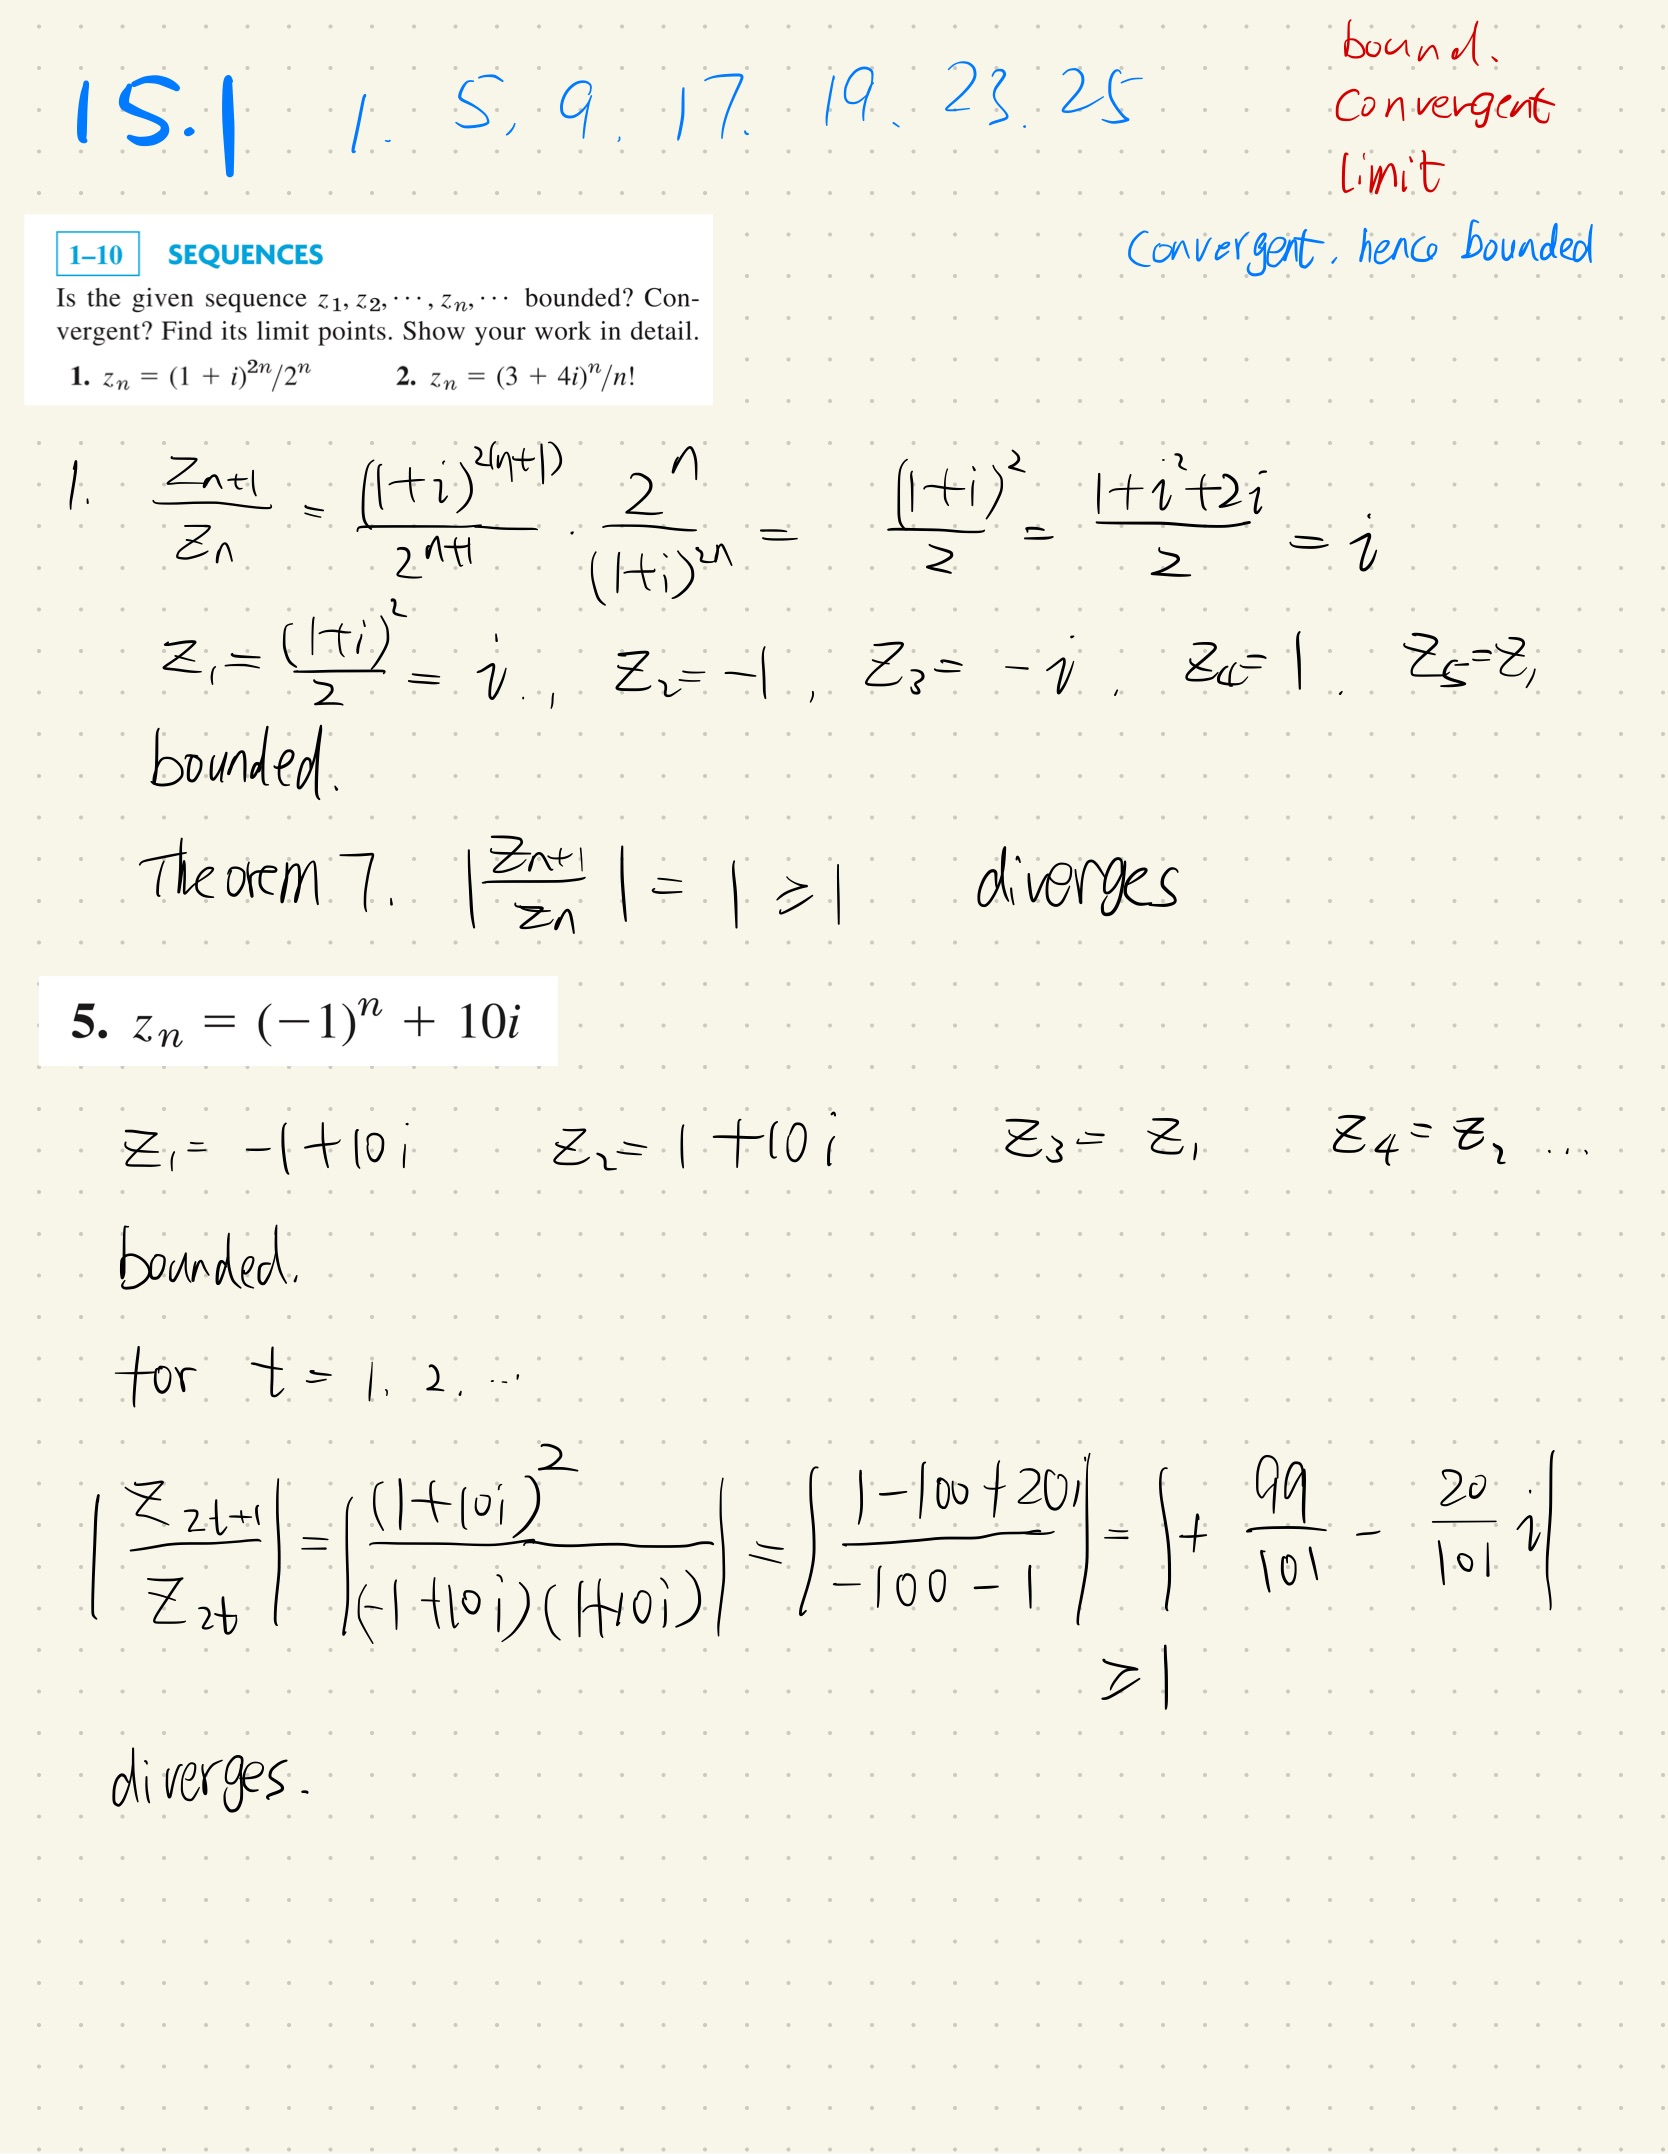 15.1 1. 5, 9. 17. 19. 23. 25
bound.
Convergent
limit
Convergent, hence bounded
1–10 SEQUENCES
Is the given sequence z₁, z₂, ···, zₙ, ··· bounded? Con-
vergent? Find its limit points. Show your work in detail.
1. zₙ = (1 + i)²ⁿ/2ⁿ 2. zₙ = (3 + 4i)ⁿ/n!
1. Zₙ₊₁/Zₙ = (1+i)^(2(n+1))/2^(n+1) · 2ⁿ/(1+i)²ⁿ = (1+i)²/2 = (1+i²+2i)/2 = i
Z₁ = (1+i)²/2 = i., Z₂ = -1, Z₃ = -i. Z₄ = 1. Z₅ = Z₁
bounded.
Theorem 7. |Zₙ₊₁/Zₙ| = 1 ⩾ 1 diverges
5. zₙ = (−1)ⁿ + 10i
Z₁ = -1+10i Z₂ = 1+10i Z₃ = Z₁ Z₄ = Z₂ ...
bounded.
for t = 1. 2. ...
|Z₂ₜ₊₁/Z₂ₜ| = |(1+10i)²/((-1+10i)(1+10i))| = |(1-100+20i)/(-100-1)| = |+ 99/101 - 20/101 i|
⩾ 1
diverges.